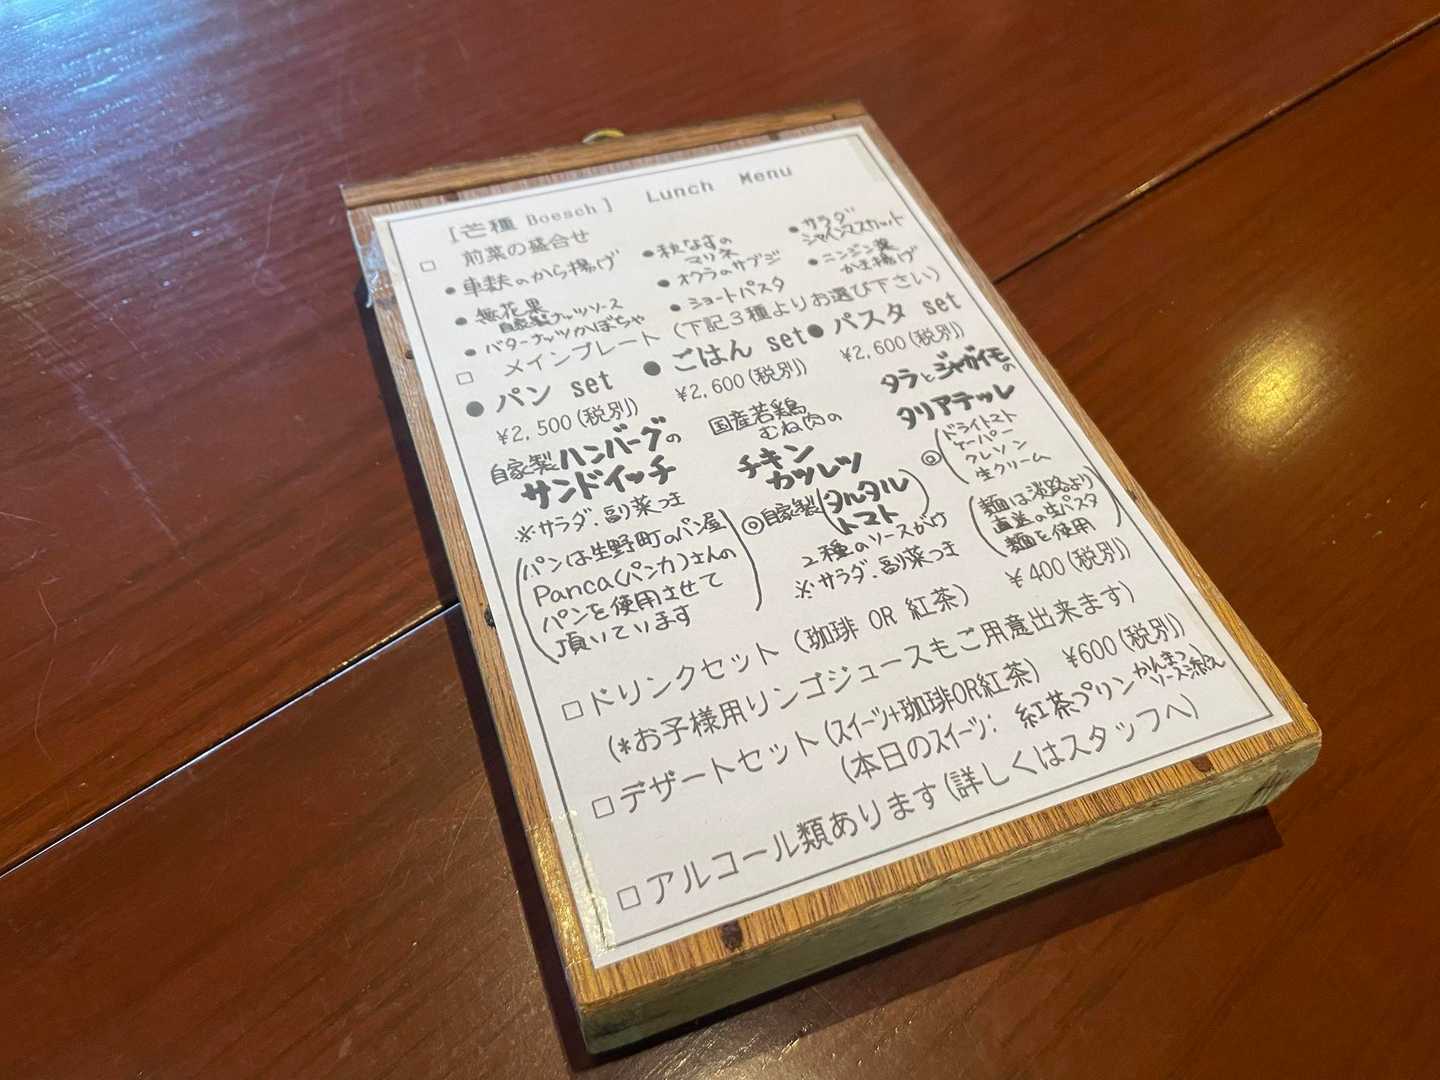 [芒種 Boesch] Lunch Menu
□ 前菜の盛合せ
●車麸のから揚げ
●無花果
自家製ナッツソース
●バターナッツかぼちゃ
●秋なすの
マリネ
●オクラのサブジ
●ショートパスタ
●サラダ
シャインマスカット
●ニンジン葉
かき揚げ
□ メインプレート (下記3種よりお選び下さい)
●パン set
¥2,500(税別)
自家製ハンバーグの
サンドイッチ
※サラダ.副菜つき
(パンは生野町のパン屋
Panca(パンカ)さんの
パンを使用させて
頂いています)
●ごはん set
¥2,600(税別)
国産若鶏
むね肉の
チキン
カツレツ
◎自家製(タルタル
トマト)
2種のソースがけ
※サラダ.副菜つき
●パスタ set
¥2,600(税別)
タラとジャガイモの
タリアテッレ
◎(ドライトマト
ケーパー
クレソン
生クリーム
(麺は淡路より
直送の生パスタ
麺を使用)
□ドリンクセット (珈琲 OR 紅茶) ¥400(税別)
(*お子様用リンゴジュースもご用意出来ます)
□デザートセット(スイーツ+珈琲OR紅茶) ¥600(税別)
(本日のスイーツ: 紅茶プリン かんきつ
ソース添え
□アルコール類あります(詳しくはスタッフへ)